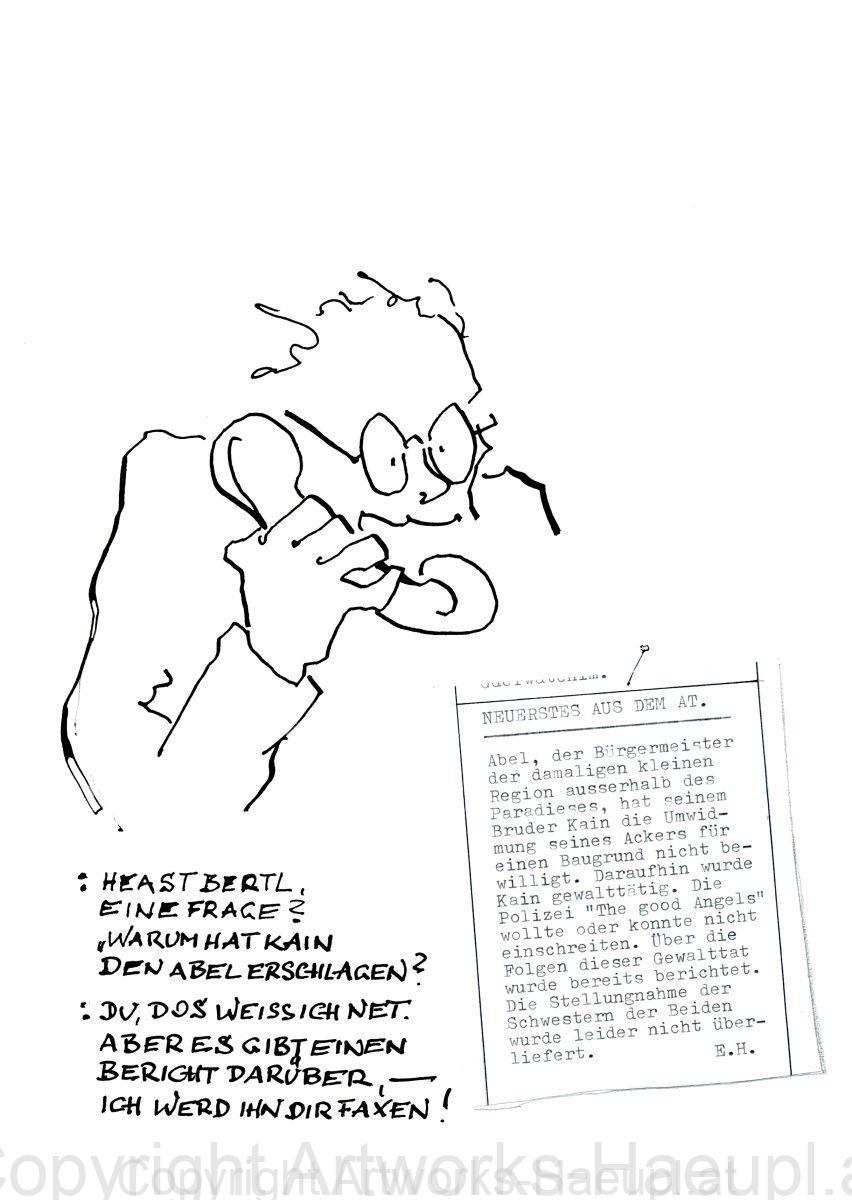 : HEAST BERTL,
EINE FRAGE?
„WARUM HAT KAIN
DEN ABEL ERSCHLAGEN?
: DU, DOS WEISS ICH NET.
ABER ES GIBT EINEN
BERICHT DARÜBER, —
ICH WERD IHN DIR FAXEN!
NEUERSTES AUS DEM AT.
Abel, der Bürgermeister
der damaligen kleinen
Region ausserhalb des
Paradieses, hat seinem
Bruder Kain die Umwid-
mung seines Ackers für
einen Baugrund nicht be-
willigt. Daraufhin wurde
Kain gewalttätig. Die
Polizei "The good Angels"
wollte oder konnte nicht
einschreiten. Über die
Folgen dieser Gewalttat
wurde bereits berichtet.
Die Stellungnahme der
Schwestern der Beiden
wurde leider nicht über-
liefert. E.H.
Copyright Artworks-Haeupl.a
Copyright Artworks-Haeupl.at